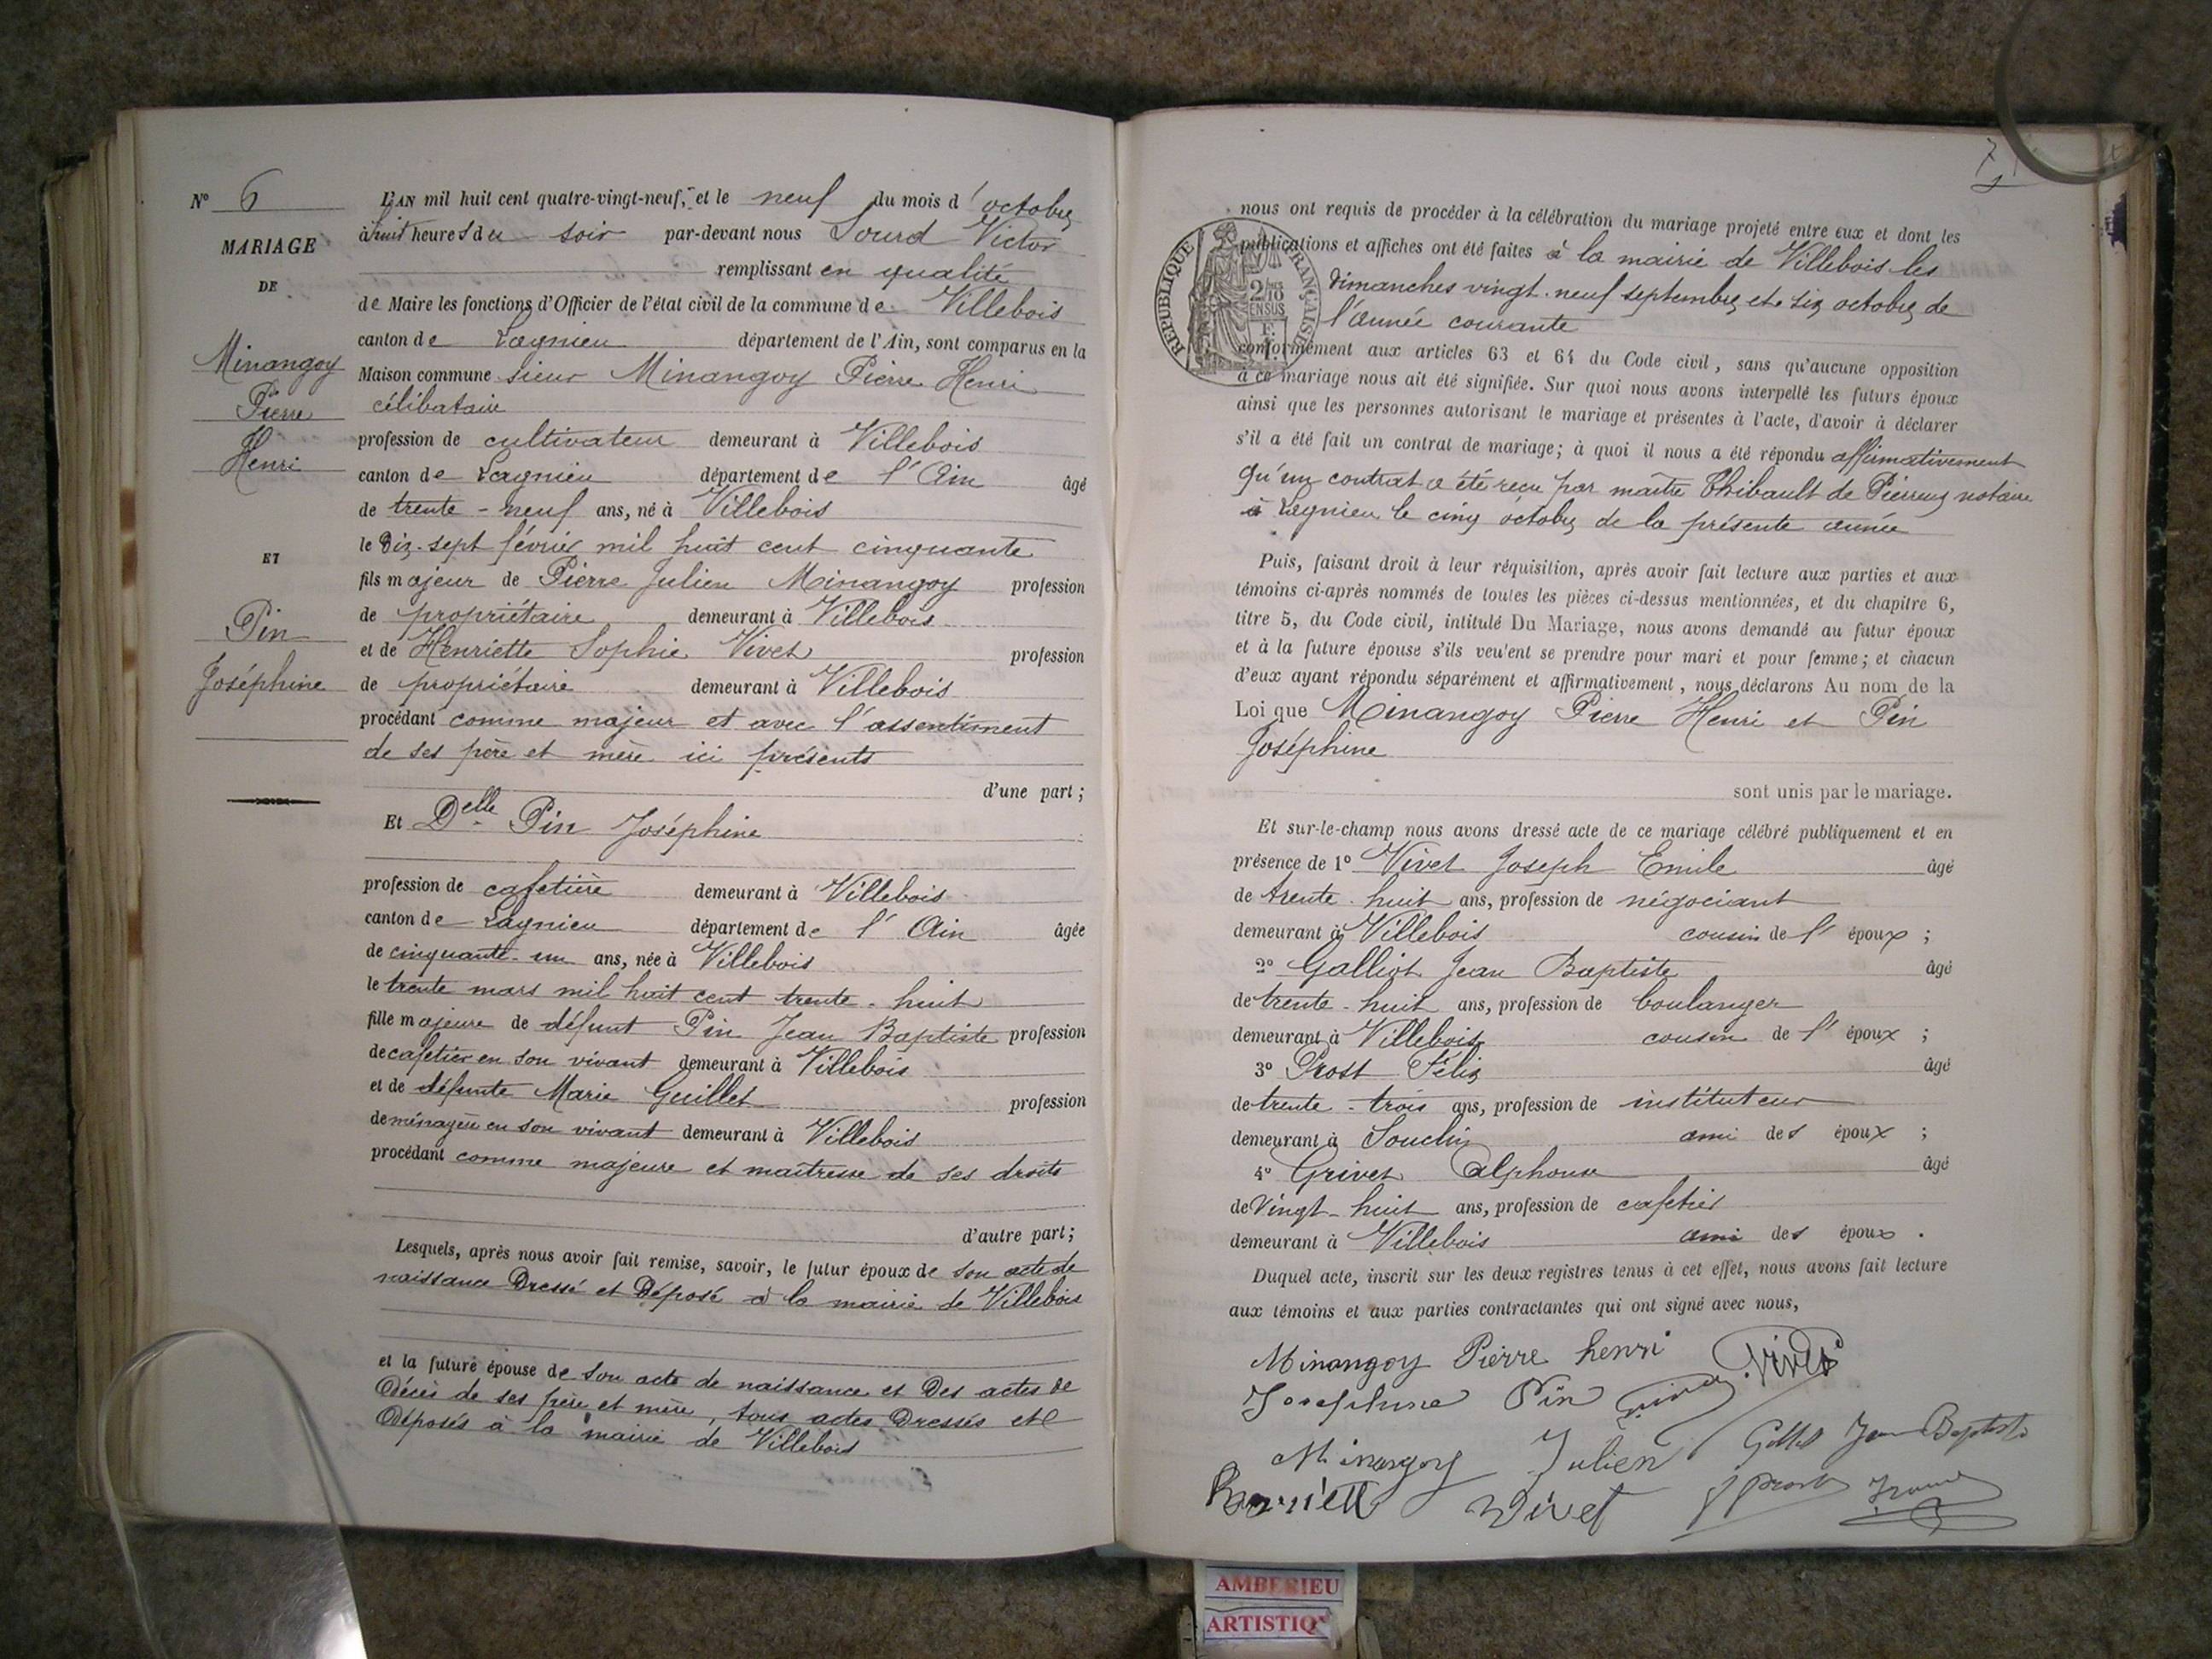 N° 6
MARIAGE
DE
Minangoy
Pierre
Henri
ET
Pin
Joséphine
L'AN mil huit cent quatre-vingt-neuf, et le neuf du mois d'octobre
à huit heures du soir par-devant nous Sourd Victor
remplissant en qualité
de Maire les fonctions d'Officier de l'état civil de la commune de Villebois
canton de Lagnieu département de l'Ain, sont comparus en la
Maison commune sieur Minangoy Pierre Henri
célibataire
profession de cultivateur demeurant à Villebois
canton de Lagnieu département de l'Ain âgé
de trente-neuf ans, né à Villebois
le Dix-sept février mil huit cent cinquante
fils majeur de Pierre Julien Minangoy profession
de propriétaire demeurant à Villebois
et de Henriette Sophie Vivet profession
de propriétaire demeurant à Villebois
procédant comme majeur et avec l'assentiment
de ses père et mère ici présents
d'une part ;
Et Delle Pin Joséphine
profession de cafetière demeurant à Villebois
canton de Lagnieu département de l'Ain âgée
de cinquante-un ans, née à Villebois
le trente mars mil huit cent trente-huit
fille majeure de défunt Pin Jean Baptiste profession
de cafetier en son vivant demeurant à Villebois
et de défunte Marie Guillet profession
de ménagère en son vivant demeurant à Villebois
procédant comme majeure et maîtresse de ses droits
d'autre part ;
Lesquels, après nous avoir fait remise, savoir, le futur époux de son acte de
naissance Dressé et Déposé à la mairie de Villebois
et la future épouse de son acte de naissance et Des actes de
Décès de ses père et mère, tous actes Dressés et
Déposés à la mairie de Villebois
nous ont requis de procéder à la célébration du mariage projeté entre eux et dont les
publications et affiches ont été faites à la mairie de Villebois les
Dimanches vingt-neuf septembre et six octobre de
l'année courante
RÉPUBLIQUE FRANÇAISE
2/10
EN SUS
conformément aux articles 63 et 64 du Code civil, sans qu'aucune opposition
à ce mariage nous ait été signifiée. Sur quoi nous avons interpellé les futurs époux
ainsi que les personnes autorisant le mariage et présentes à l'acte, d'avoir à déclarer
s'il a été fait un contrat de mariage ; à quoi il nous a été répondu affirmativement
qu'un contrat a été reçu par maître Thibault de Pierreux notaire
à Lagnieu le cinq octobre de la présente année
Puis, faisant droit à leur réquisition, après avoir fait lecture aux parties et aux
témoins ci-après nommés de toutes les pièces ci-dessus mentionnées, et du chapitre 6,
titre 5, du Code civil, intitulé Du Mariage, nous avons demandé au futur époux
et à la future épouse s'ils veulent se prendre pour mari et pour femme ; et chacun
d'eux ayant répondu séparément et affirmativement, nous déclarons Au nom de la
Loi que Minangoy Pierre Henri et Pin
Joséphine
sont unis par le mariage.
Et sur-le-champ nous avons dressé acte de ce mariage célébré publiquement et en
présence de 1° Vivet Joseph Emile âgé
de trente-huit ans, profession de négociant
demeurant à Villebois cousin de l'époux ;
2° Galliot Jean Baptiste âgé
de trente-huit ans, profession de boulanger
demeurant à Villebois cousin de l'époux ;
3° Prost Félix âgé
de trente-trois ans, profession de instituteur
demeurant à Souclin ami des époux ;
4° Grivet Alphonse âgé
de Vingt-huit ans, profession de cafetier
demeurant à Villebois ami des époux .
Duquel acte, inscrit sur les deux registres tenus à cet effet, nous avons fait lecture
aux témoins et aux parties contractantes qui ont signé avec nous,
Minangoy Pierre henri Vivet
Josephine Pin
Minangoy Julien Jean Baptiste
henriette Vivet Prost
AMBERIEU
ARTISTIQ